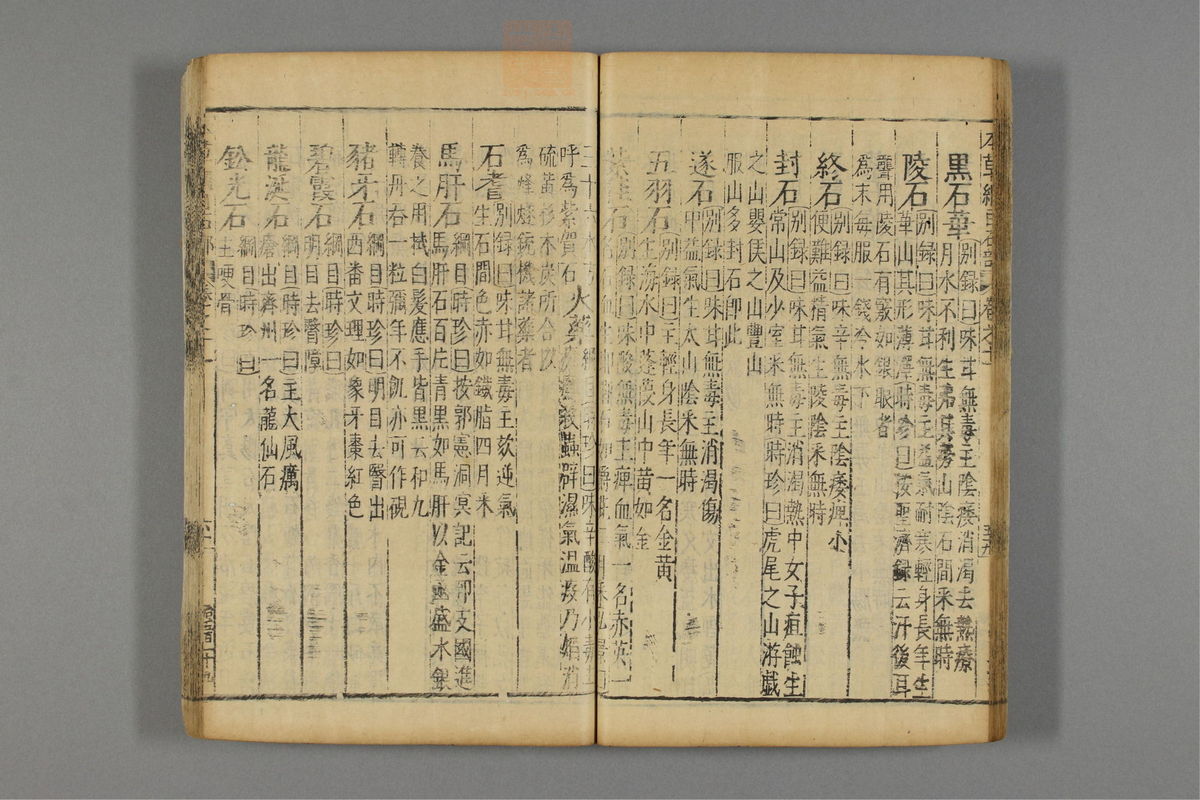 黒石華
別録曰味甘無毒主陰痿消渇去熱療
月水不利生弗其勞山陰石間采無時
陵石
別録曰味甘無毒主益氣耐寒輕身長年生
華山其形薄澤時珍曰按聖濟録云汗後耳
聾用陵石有竅如銀眼者
為末毎服一錢冷水下
終石
別録曰味辛無毒主陰痿痺小
便難益精氣生陵陰采無時
封石
別録曰味甘無毒主消渇熱中女子疽蝕生
常山及少室采無時時珍曰虎尾之山游戯
之山嬰侯之山豐山
服山多封石即此
遂石
別録曰味甘無毒主消渇傷
中益氣生太山陰采無時
五羽石
別録曰主輕身長年一名金黄
生海水中蓬葭山中黄如金
紫佳石
別録曰味酸無毒主痺血氣一名赤英一
呼為紫賀石
火藥
味辛酸有小毒
瘡癬殺蟲辟濕氣温疫乃焔消
硫黄杉木炭所合以
為烽燧銃機諸藥者
石耆
別録曰味甘無毒主欬逆氣
生石間色赤如鐵脂四月采
馬肝石
綱目時珍曰按郭憲洞冥記云郅支國進
馬肝石百片青黒如馬肝以金函盛水銀
養之用拭白髪應手皆黒云和九
轉丹呑一粒彌年不飢亦可作硯
豬牙石
綱目時珍曰明目去瞖出
西番文理如象牙棗紅色
碧霞石
綱目時珍曰
明目去瞖障
龍涎石
綱目時珍曰主大風癘
瘡出齊州一名龍仙石
鉛光石
綱目時珍曰
主哽骨